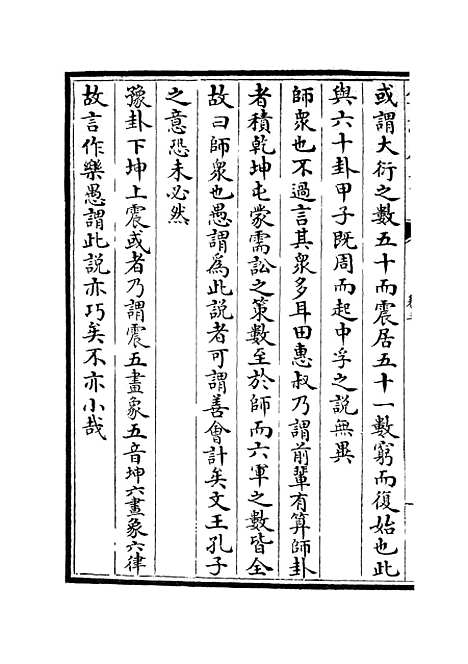 或謂大衍之數五十而震居五十一數窮而復始也此
與六十卦甲子既周而起中孚之說無異
師衆也不過言其衆多耳田惠叔乃謂前輩有算師卦
者積乾坤屯蒙需訟之策數至於師而六軍之數皆全
故曰師衆也愚謂為此說者可謂善會計矣文王孔子
之意恐未必然
豫卦下坤上震或者乃謂震五畫象五音坤六畫象六律
故言作樂愚謂此說亦巧矣不亦小哉